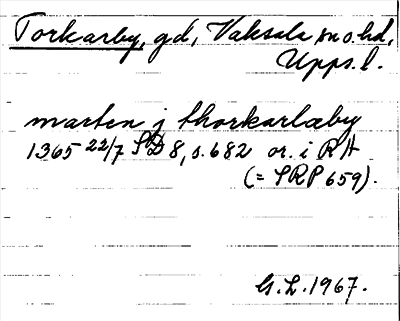 Torkarby, gd, Vaksala sn o. hd,
Upps. l.
marten j thorkarlæby
1365 22/7 SD 8, s. 682 or. i RA
(= SRP 659).
G. L. 1967.